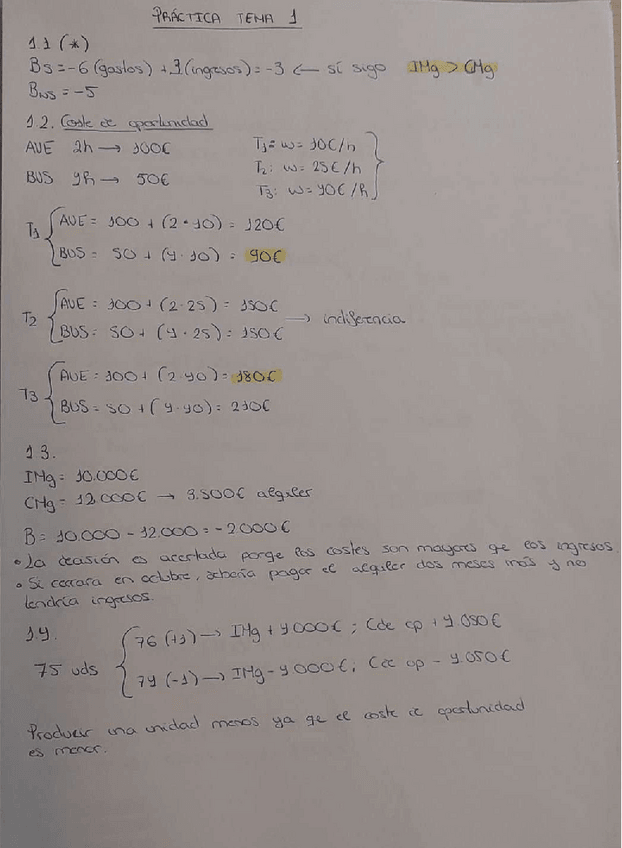 PRÁCTICA TEMA 1
1.1 (*)
Bs = -6 (gastos) + 3 (ingresos) = -3 ← sí sigo IMg > CMg
BNS = -5
1.2. Coste de oportunidad
AVE 2h → 100€ T1 = w = 10€/h
BUS 4h → 50€ T2: w = 25€/h
T3: w = 40€/h
T1 AVE = 100 + (2 · 10) = 120€
BUS = 50 + (4 · 10) = 90€
T2 AVE = 100 + (2 · 25) = 150€
BUS = 50 + (4 · 25) = 150€ → indiferencia
T3 AVE = 100 + (2 · 40) = 180€
BUS = 50 + (4 · 40) = 210€
1.3.
IMg = 10.000€
CMg = 12.000€ → 3.500€ alquiler
B = 10.000 - 12.000 = -2000€
• La decisión es acertada porqe los costes son mayores qe los ingresos.
• Si cerrara en octubre, debería pagar el alquiler dos meses más y no
tendría ingresos.
1.4.
76 (+1) → IMg + 4000€; Cde op + 4.050€
75 uds
74 (-1) → IMg - 4000€; Cde op - 4.050€
Producir una unidad menos ya qe el coste de oportunidad
es menor.